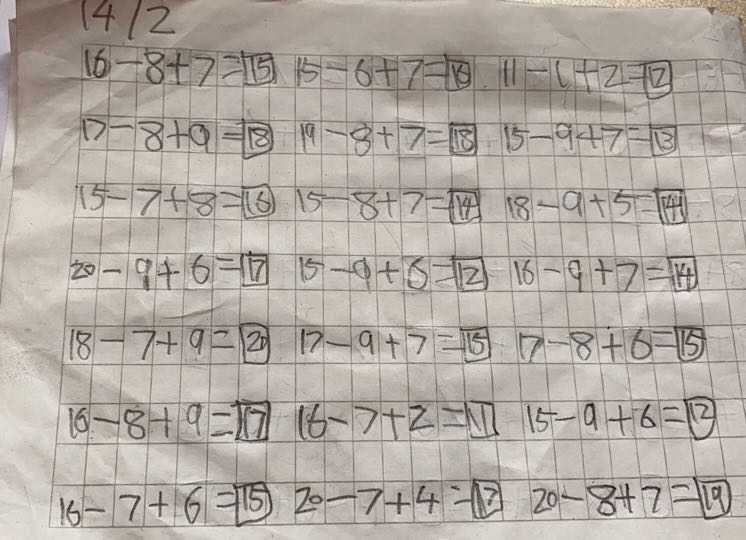 14/2
16-8+7=15 15-6+7=16 11-1+2=12
17-8+9=18 19-8+7=18 15-9+7=13
15-7+8=16 15-8+7=14 18-9+5=14
20-9+6=17 15-9+6=12 16-9+7=14
18-7+9=20 17-9+7=15 17-8+6=15
16-8+9=17 16-7+2=11 15-9+6=12
16-7+6=15 20-7+4=17 20-8+7=19